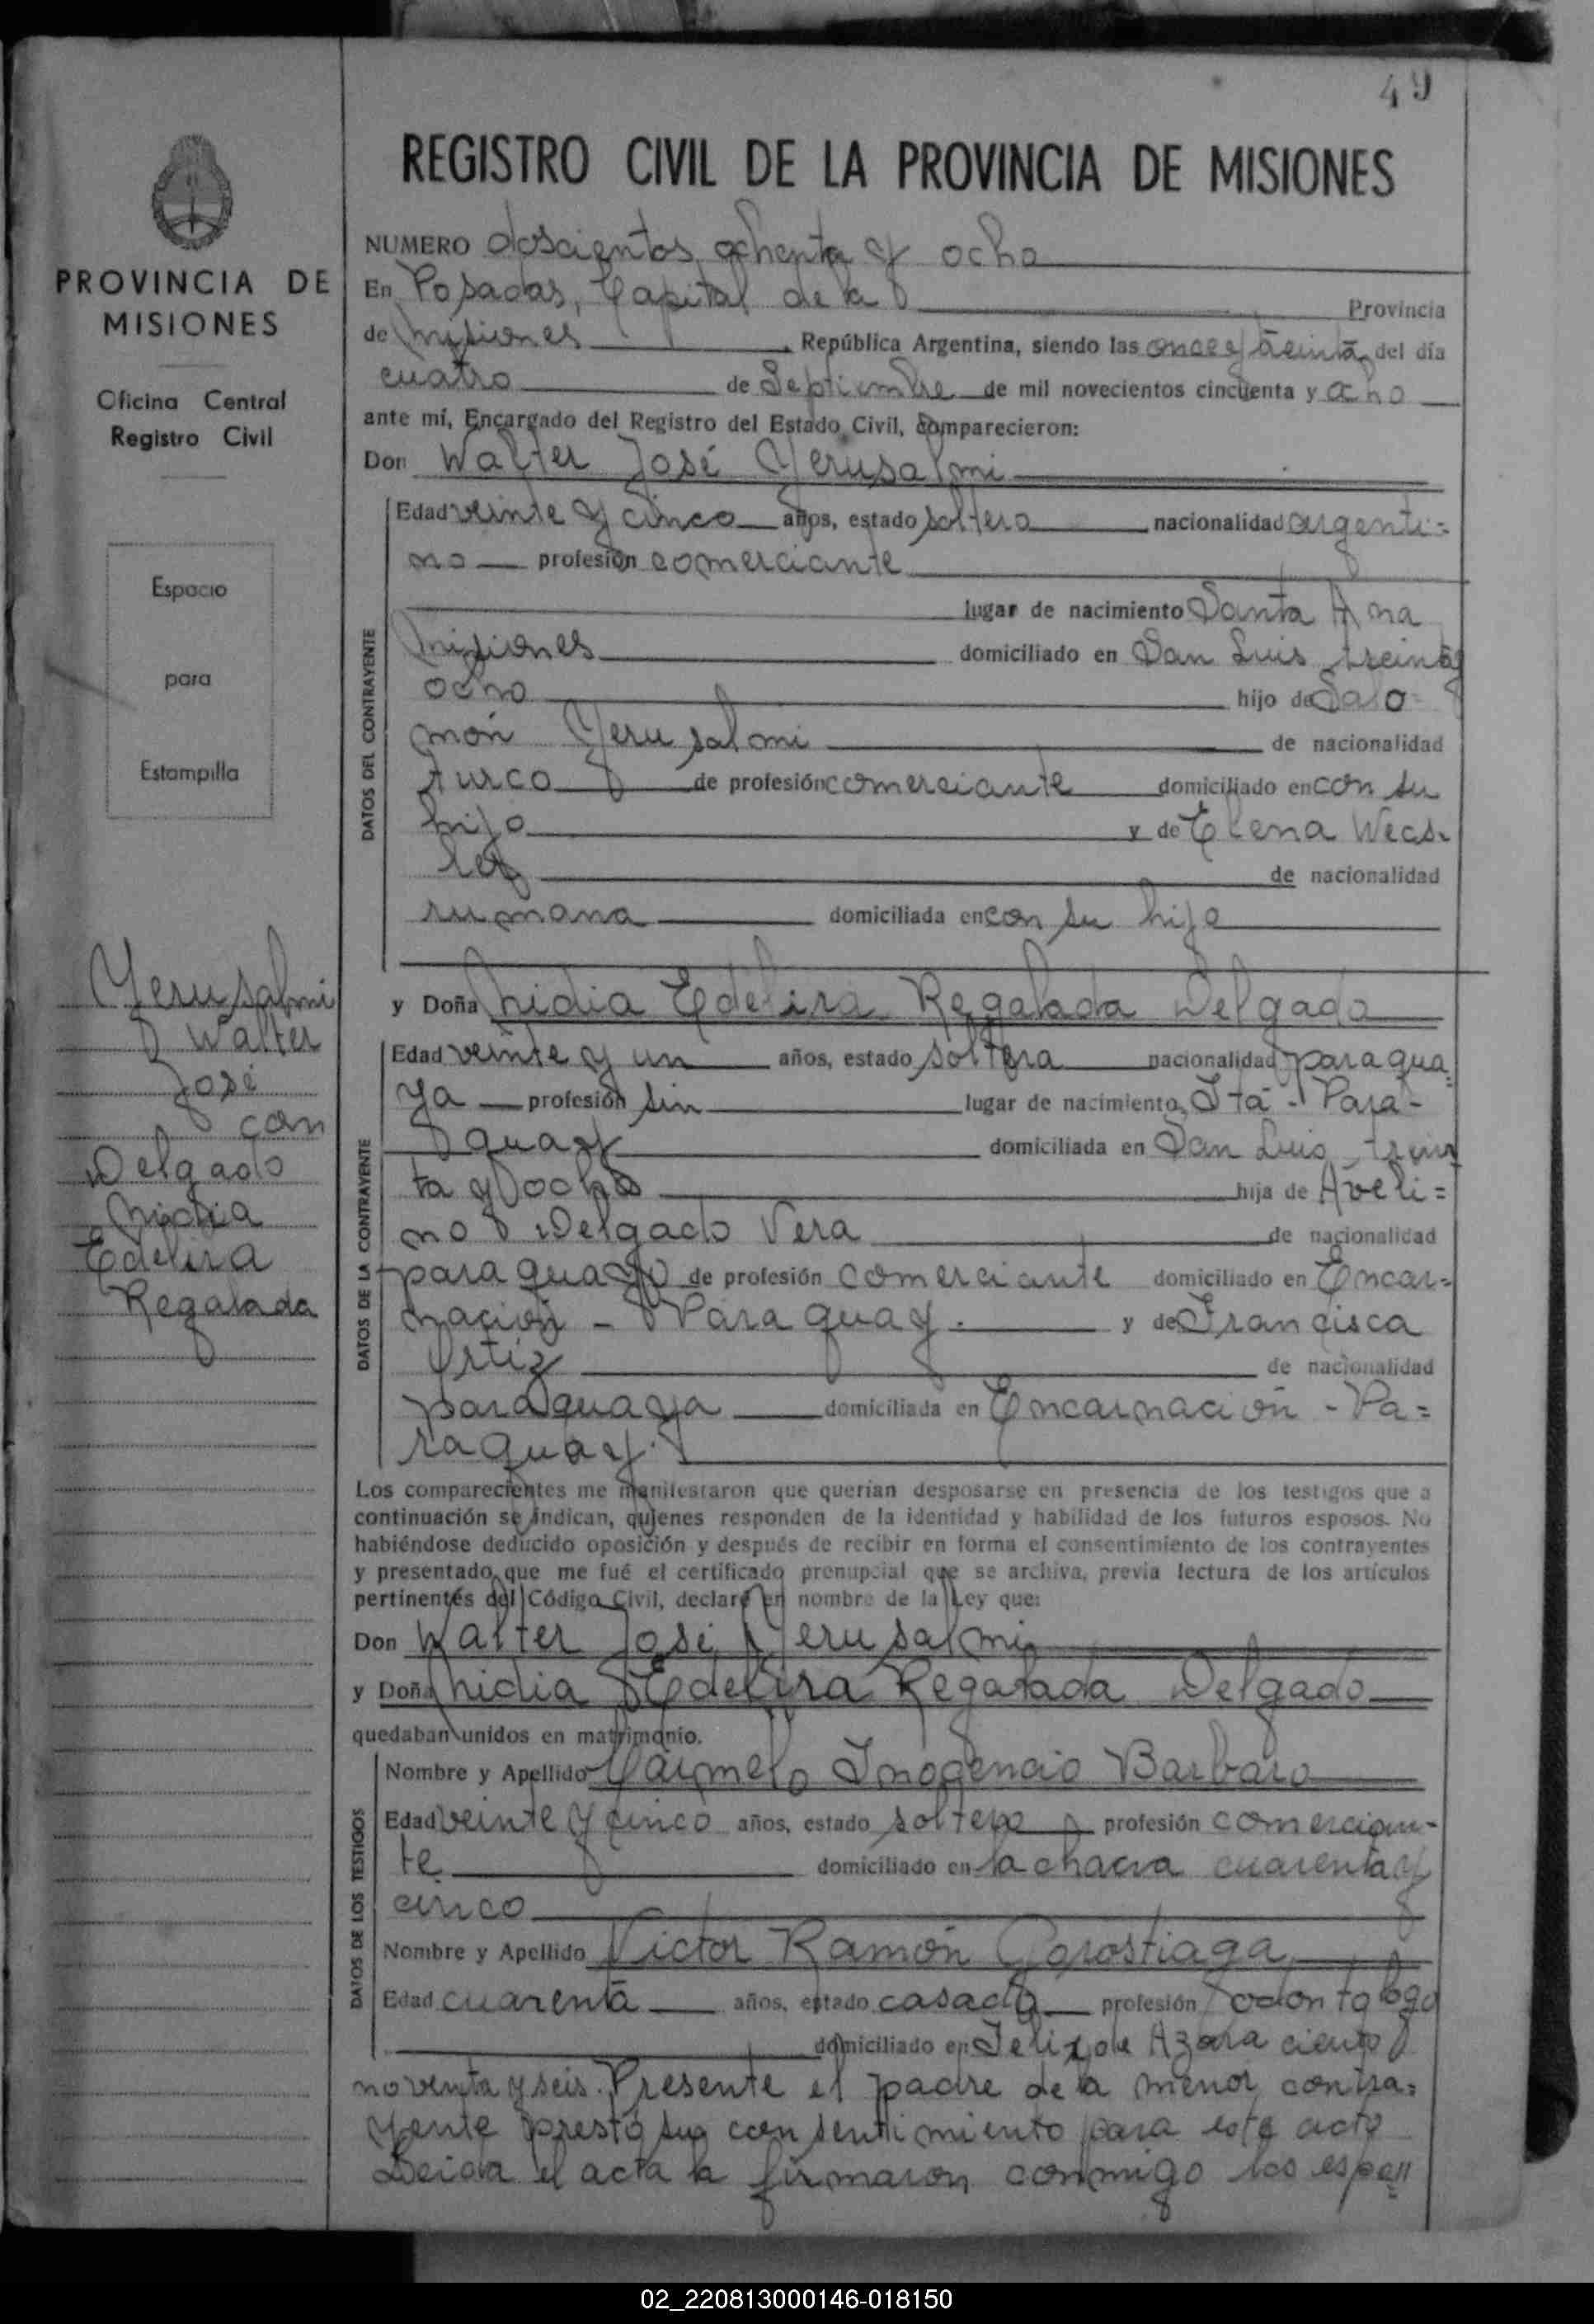 49
REGISTRO CIVIL DE LA PROVINCIA DE MISIONES
PROVINCIA DE
MISIONES
Oficina Central
Registro Civil
Espacio
para
Estampilla
Yerusalmi
Walter
José
con
Delgado
Nidia
Edelira
Regalada
NUMERO doscientos ochenta y ocho
En Posadas, Capital de la Provincia
de Misiones, República Argentina, siendo las once y treinta del día
cuatro de Septiembre de mil novecientos cincuenta y ocho
ante mí, Encargado del Registro del Estado Civil, comparecieron:
Don Walter José Yerusalmi
DATOS DEL CONTRAYENTE
Edad veinte y cinco años, estado soltero nacionalidad argenti=
no profesión comerciante
lugar de nacimiento Santa Ana
Misiones domiciliado en San Luis treinta y
ocho hijo de Salo
món Yerusalmi de nacionalidad
turco de profesión comerciante domiciliado en con su
hijo y de Elena
de nacionalidad
rumana domiciliada en con su hijo
y Doña Nidia Edelira Regalada Delgado
DATOS DE LA CONTRAYENTE
Edad veinte y un años, estado soltera nacionalidad paragua=
ya profesión sin lugar de nacimiento Itá - Para-
guay domiciliada en San Luis trein
ta y ocho hija de Aveli=
no Delgado Vera de nacionalidad
paraguayo de profesión comerciante domiciliado en Encar=
nación - Paraguay. y de Francisca
Ortiz de nacionalidad
paraguaya domiciliada en Encarnación - Pa=
raguay.
Los comparecientes me manifestaron que querían desposarse en presencia de los testigos que a
continuación se indican, quienes responden de la identidad y habilidad de los futuros esposos. No
habiéndose deducido oposición y después de recibir en forma el consentimiento de los contrayentes
y presentado que me fué el certificado prenupcial que se archiva, previa lectura de los artículos
pertinentes del Código Civil, declaré en nombre de la Ley que:
Don Walter José Yerusalmi
y Doña Nidia Edelira Regalada Delgado
quedaban unidos en matrimonio.
DATOS DE LOS TESTIGOS
Nombre y Apellido Carmelo Inogencio Barbaro
Edad veinte y cinco años, estado soltero profesión comercian-
te domiciliado en la chacra cuarenta y
cinco
Nombre y Apellido Victor Ramón Gorostiaga
Edad cuarenta años, estado casado profesión odontologo
domiciliado en Felix de Azara ciento
noventa y seis. Presente el padre de la menor contra=
yente prestó su consentimiento para este acto
Leida el acta la firmaron conmigo los espo"
02_220813000146-018150